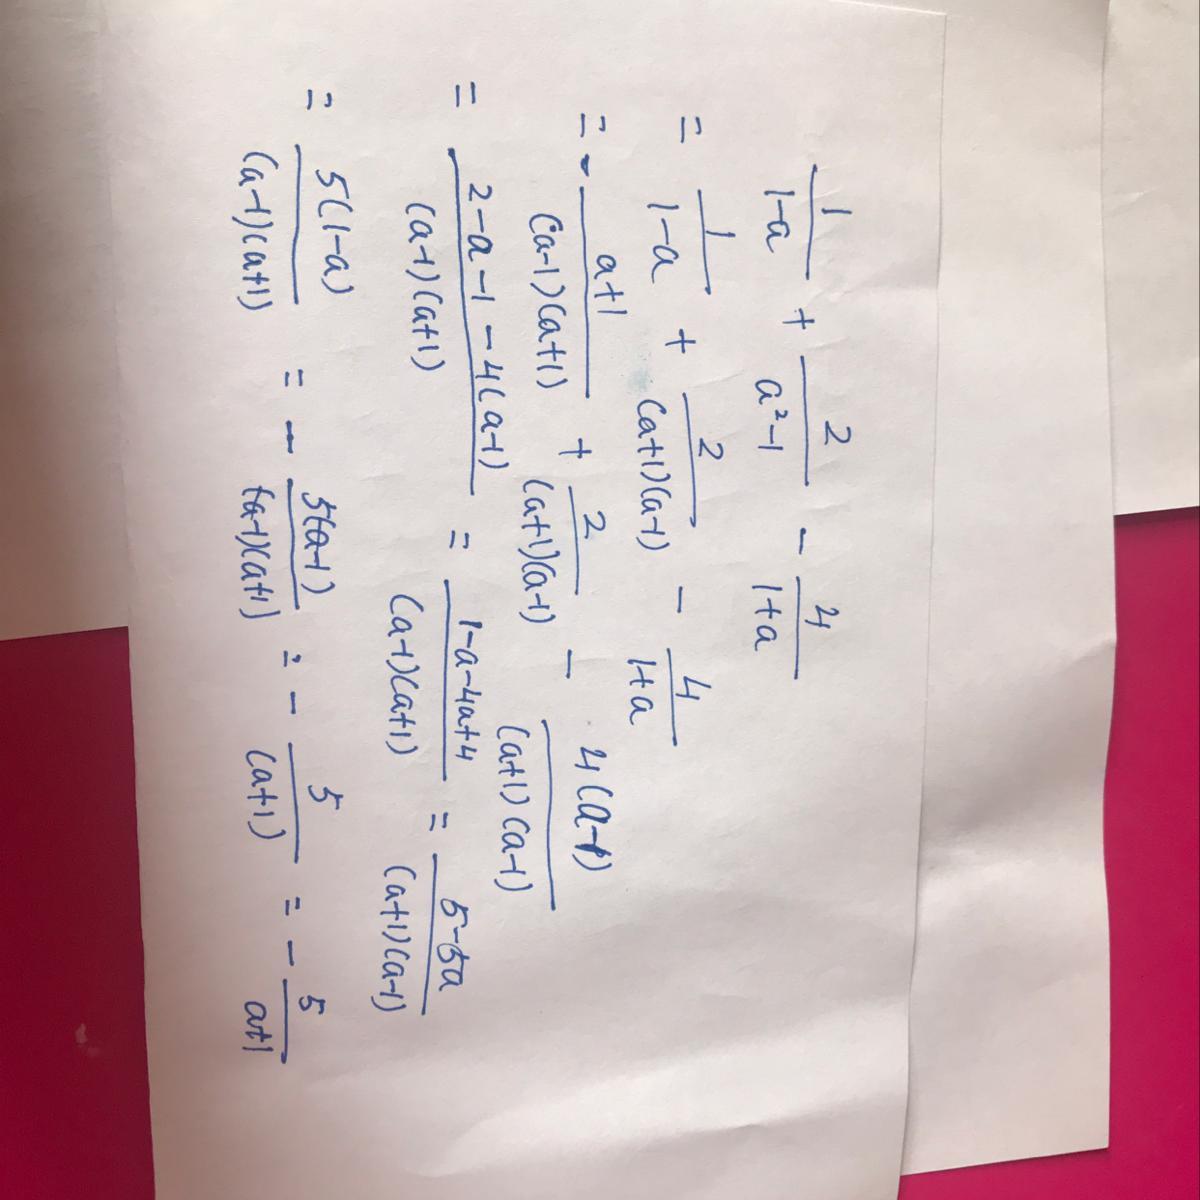 1/(1-a) + 2/(a²-1) - 4/(1+a)
= 1/(1-a) + 2/((a+1)(a-1)) - 4/(1+a)
= - (a+1)/((a-1)(a+1)) + 2/((a+1)(a-1)) - 4(a-1)/((a+1)(a-1))
= (2-a-1-4(a-1))/((a-1)(a+1)) = (1-a-4a+4)/((a-1)(a+1)) = (5-5a)/((a+1)(a-1))
= 5(1-a)/((a-1)(a+1)) = - 5(a-1)/((a-1)(a+1)) = - 5/(a+1) = - 5/a+1